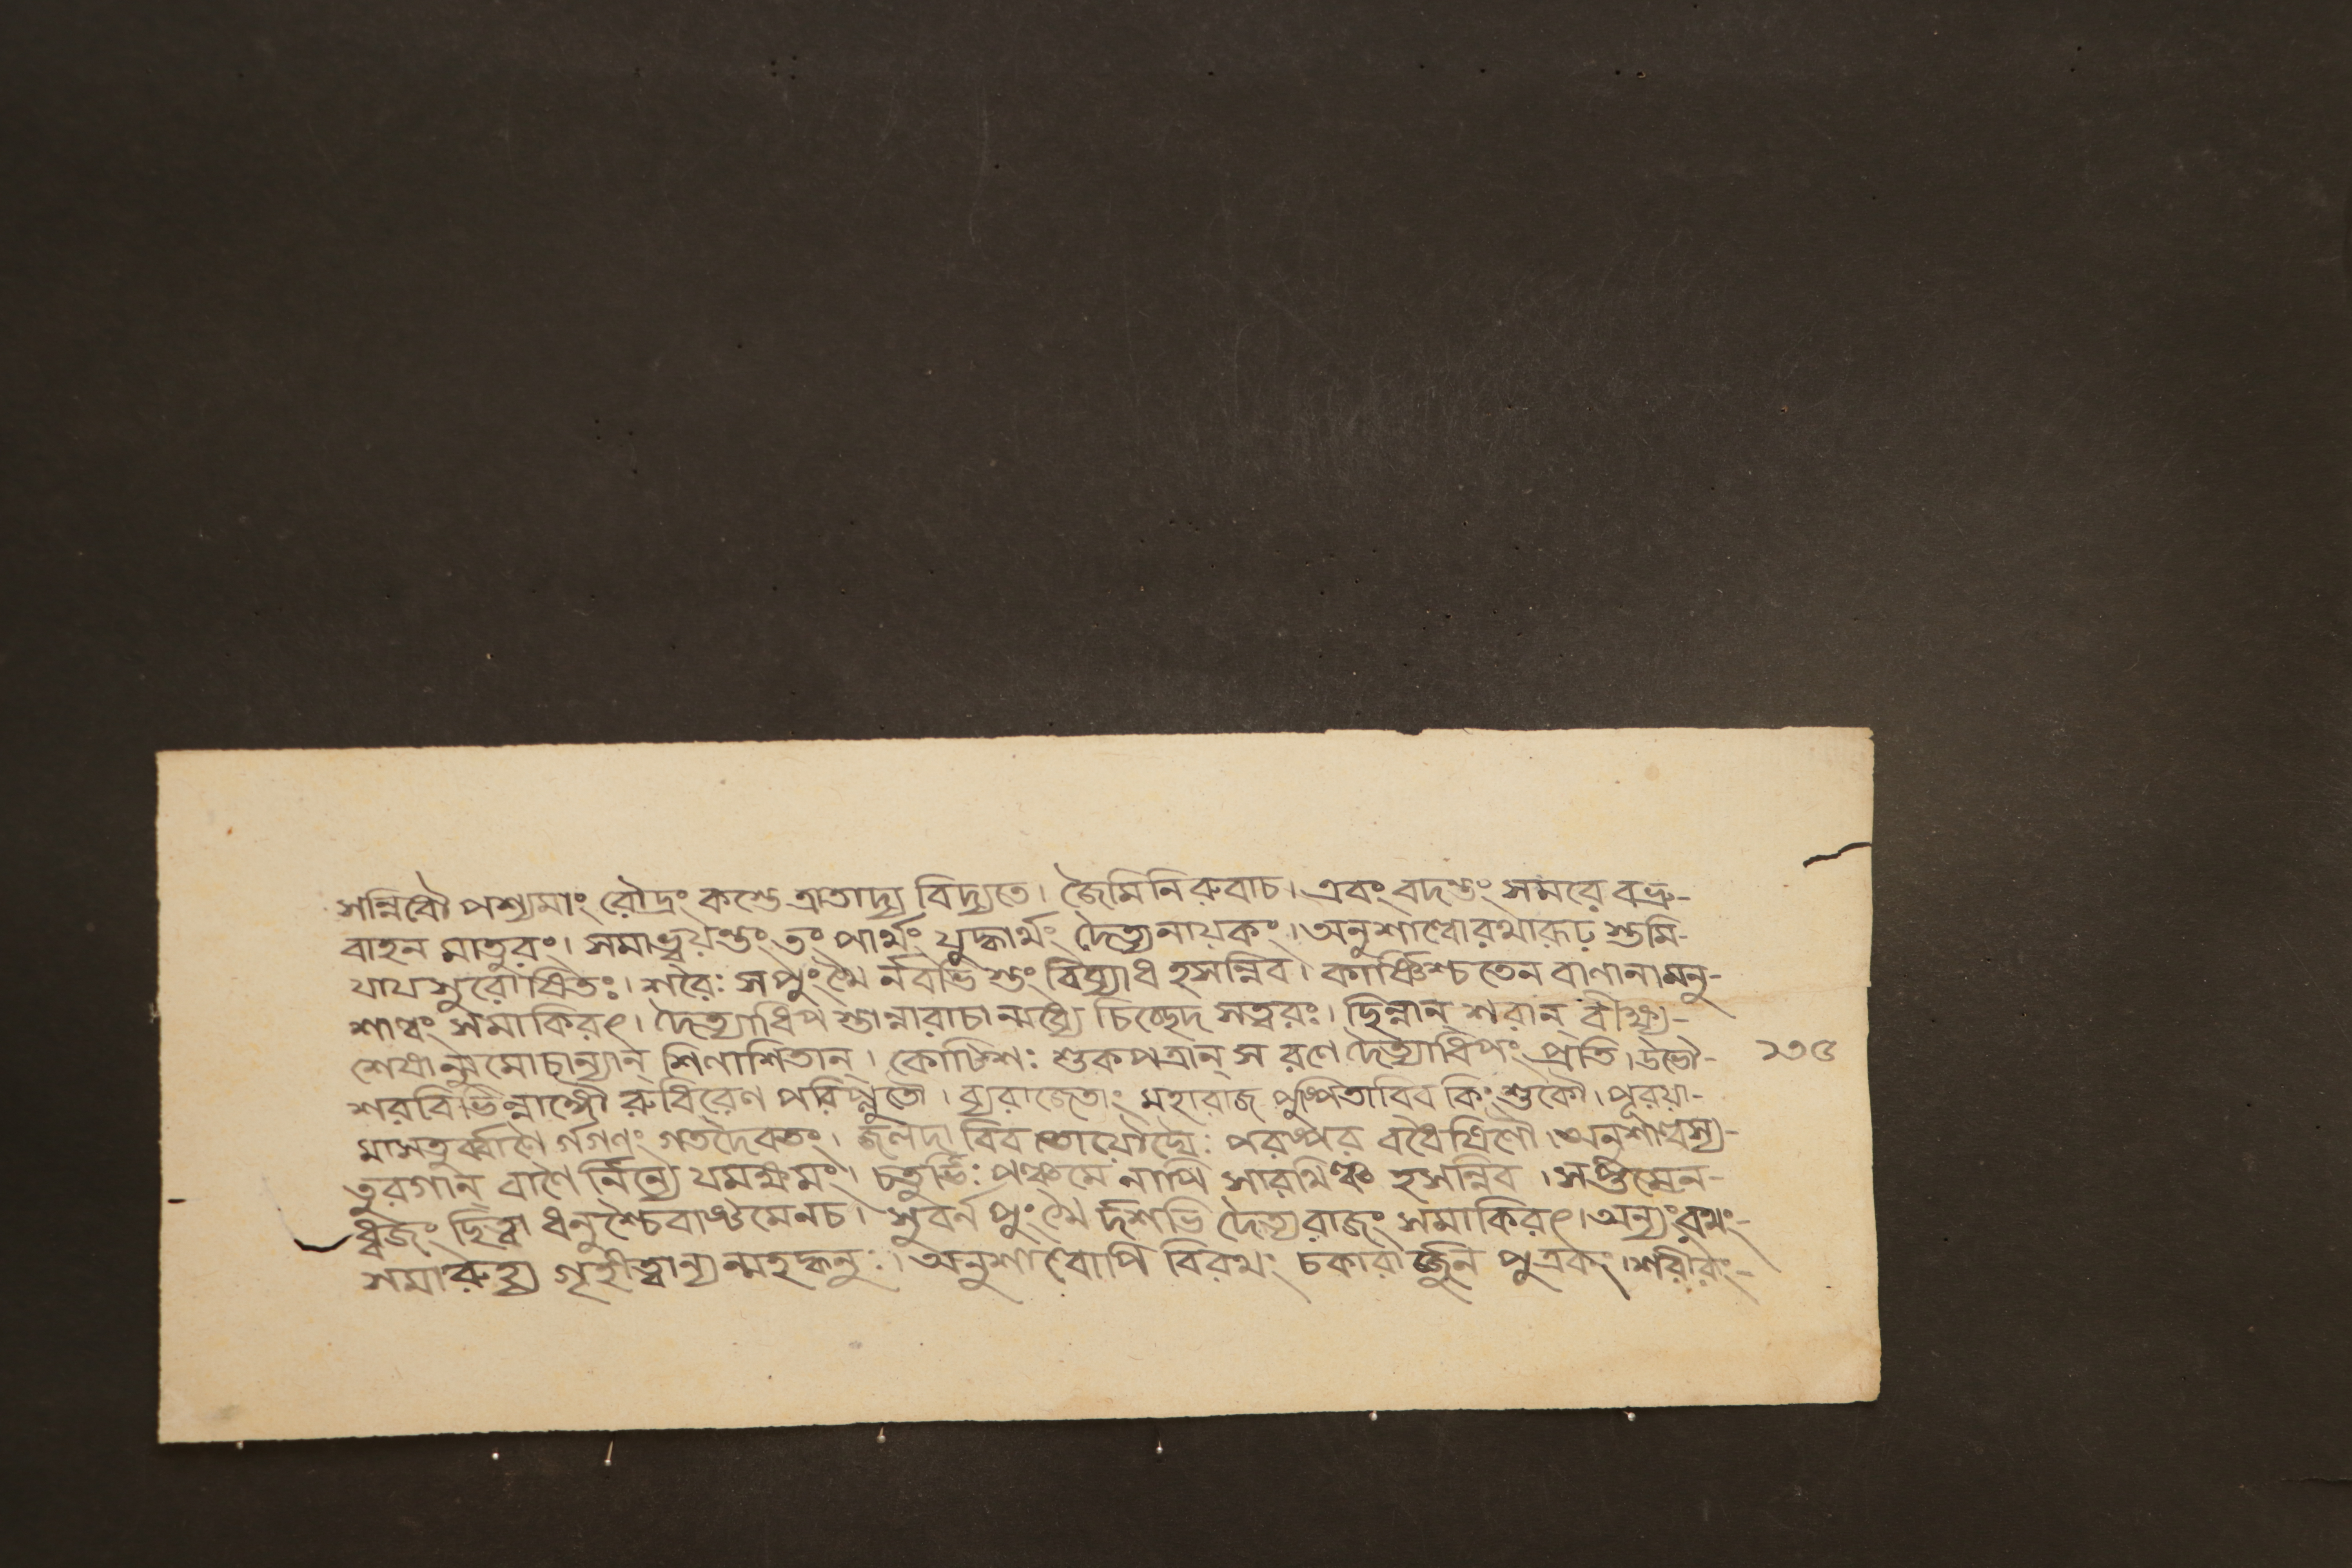 সন্নিধৌ পশ্যমাং রৌদ্রং কস্তে ত্রাতাদ্য বিদ্যতে। জৈমিনিরুবাচ। এবং বদন্তং সমরে বভ্রু-
বাহন মাতুরং। সমাহ্বয়ন্তং তং পার্থং যুদ্ধার্থং দৈত্যনায়কং। অনুশাল্বোরথারূঢ় স্তমি-
যাযসুরোপ্রিতঃ। শরৈঃ সপুংখৈ র্নবভি স্তং বিব্যাধ হসন্নিব। কার্ষ্ণিশ্চতেন বাণানামনু-
শাল্বং সমাকিরৎ। দৈত্যাধিপ স্তান্নারাচান্মধ্যে চিচ্ছেদ সত্বরঃ। ছিন্নান্ শরান্ বীক্ষ্য-
শেষান্মুমোচান্যান্ শিণাশিতান্। কোটিশঃ শুকপত্রান্ স রণে দৈত্যাধিপং প্রতি। উভৌ- ১৩৫
শরবিভিন্নাঙ্গৌ রুধিরেণ পরিপ্লুতৌ। ব্যরাজেতাং মহারাজ পুষ্পিতাবিব কিংশুকৌ। পূরয়া-
মাসতুর্ব্বাণৈ র্গগণং গতদৈবতং। জলদা বিব তোয়ৌঘৈঃ পরষ্পর বধৈষিণৌ। অনুশাল্বস্য-
তুরগান্ বাণৈ র্নিন্যে যমক্ষমং। চতুর্ভিঃ পঞ্চমে নাপি সারথিঞ্চ হসন্নিব। সপ্তমেন-
ধ্বজং ছিত্বা ধনুশ্চৈবাষ্টমেনচ। সুবর্ন পুংখৈ র্দশভি র্দৈত্যরাজং সমাকিরৎ। অন্যংরথং-
সমারুহ্য গৃহীত্বান্যন্মহদ্ধনুঃ। অনুশাল্বোপি বিরথং চকারার্জ্জুন পুত্রকং। শরীরং-